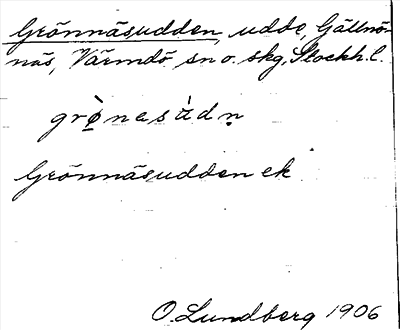 Grönnäsudden, udde, Gällnö-
näs, Värmdö sn o. skg, Stockh. l.
grø̀nasàdn̥
Grönnäsudden ek
O. Lundberg 1906